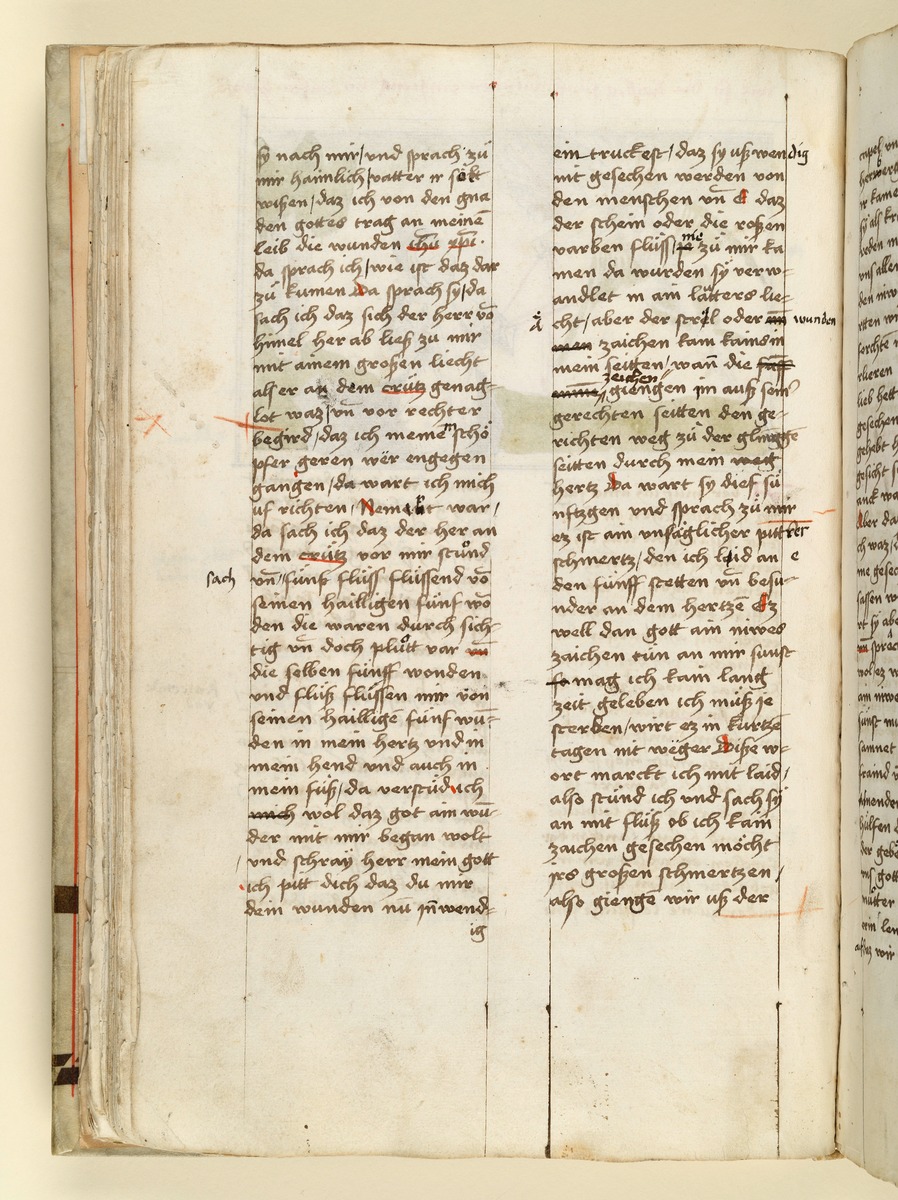 sy nach mir / vnd sprach zů
mir haimlich / vatter ir sölt
wißen / daz ich von den gna
den gottes trag an meinē
leib die wunden ihū xpi ·
da sprach ich / wie ist daz dar
zů kumen Da sprach sy / da
sach ich daz sich der herr vō
himel her ab ließ zů mir
mit ainem großen liecht
als er an dem crütz genag-
lot waz / vn̄ vor rechter
begird / daz ich meinem schö
pfer geren wër engegen
gangen / da wart ich mich
uf richten / war /
da sach ich daz der her an
dem crütz vor mir stůnd
sach
vn̄ / fünff flüss flüssend vō
seinen hailligen fünf wo
den die waren durch sich-
tig vn̄ doch plůtt var vn̄
die selben fünff wonden
vnd flüß flüssen mir von
seinen hailligē fünf wū-
den in mein hertz vnd in
mein hend vnd auch in
mein füß / da verstůd ich
mich wol daz got ain wū-
der mit mir began wolt
vnd schray herr mein gott
ich pitt dich daz du mir
dein wunden nū in̄wend-
ig
ein truckest / daz sy uß wendig
nit gesechen werden von
den menschen vn̄ daz
der schein oder die roßen
varben flüss / zů mir ka
men da wurden sy verw-
andlet in ain lätters lie-
cht / aber der oder wunden
men zaichen kam kains in
mein seitten / wan̄ die
zeichen
giengen im auß sein
gerechten seitten den ge-
richten weg zů der glingge
seitten durch mein weg
hertz Da wart sy dief sü
nftzgen vnd sprach zů mir
ez ist ain vnsäglicher pitter
schmertz / den ich laid an e
den fünff stetten vn̄ besu-
nder an dem hertzē Ez
well dan gott ain niwes
zaichen tůn an mir sunst
so mag ich kain lang
zeit geleben ich můß ie
sterben / wirt ez in kurtzē
tagen nit weger Diße w-
ort marckt ich mit laid /
also stůnd ich vnd sach sy
an mit flüß ob ich kain
zaichen gesechen möcht
irs großen schmertzen /
also gienge wir uß der